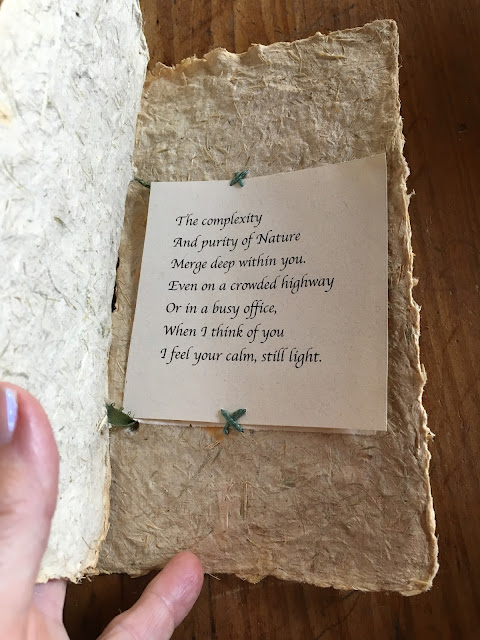 The complexity
And purity of Nature
Merge deep within you.
Even on a crowded highway
Or in a busy office,
When I think of you
I feel your calm, still light.